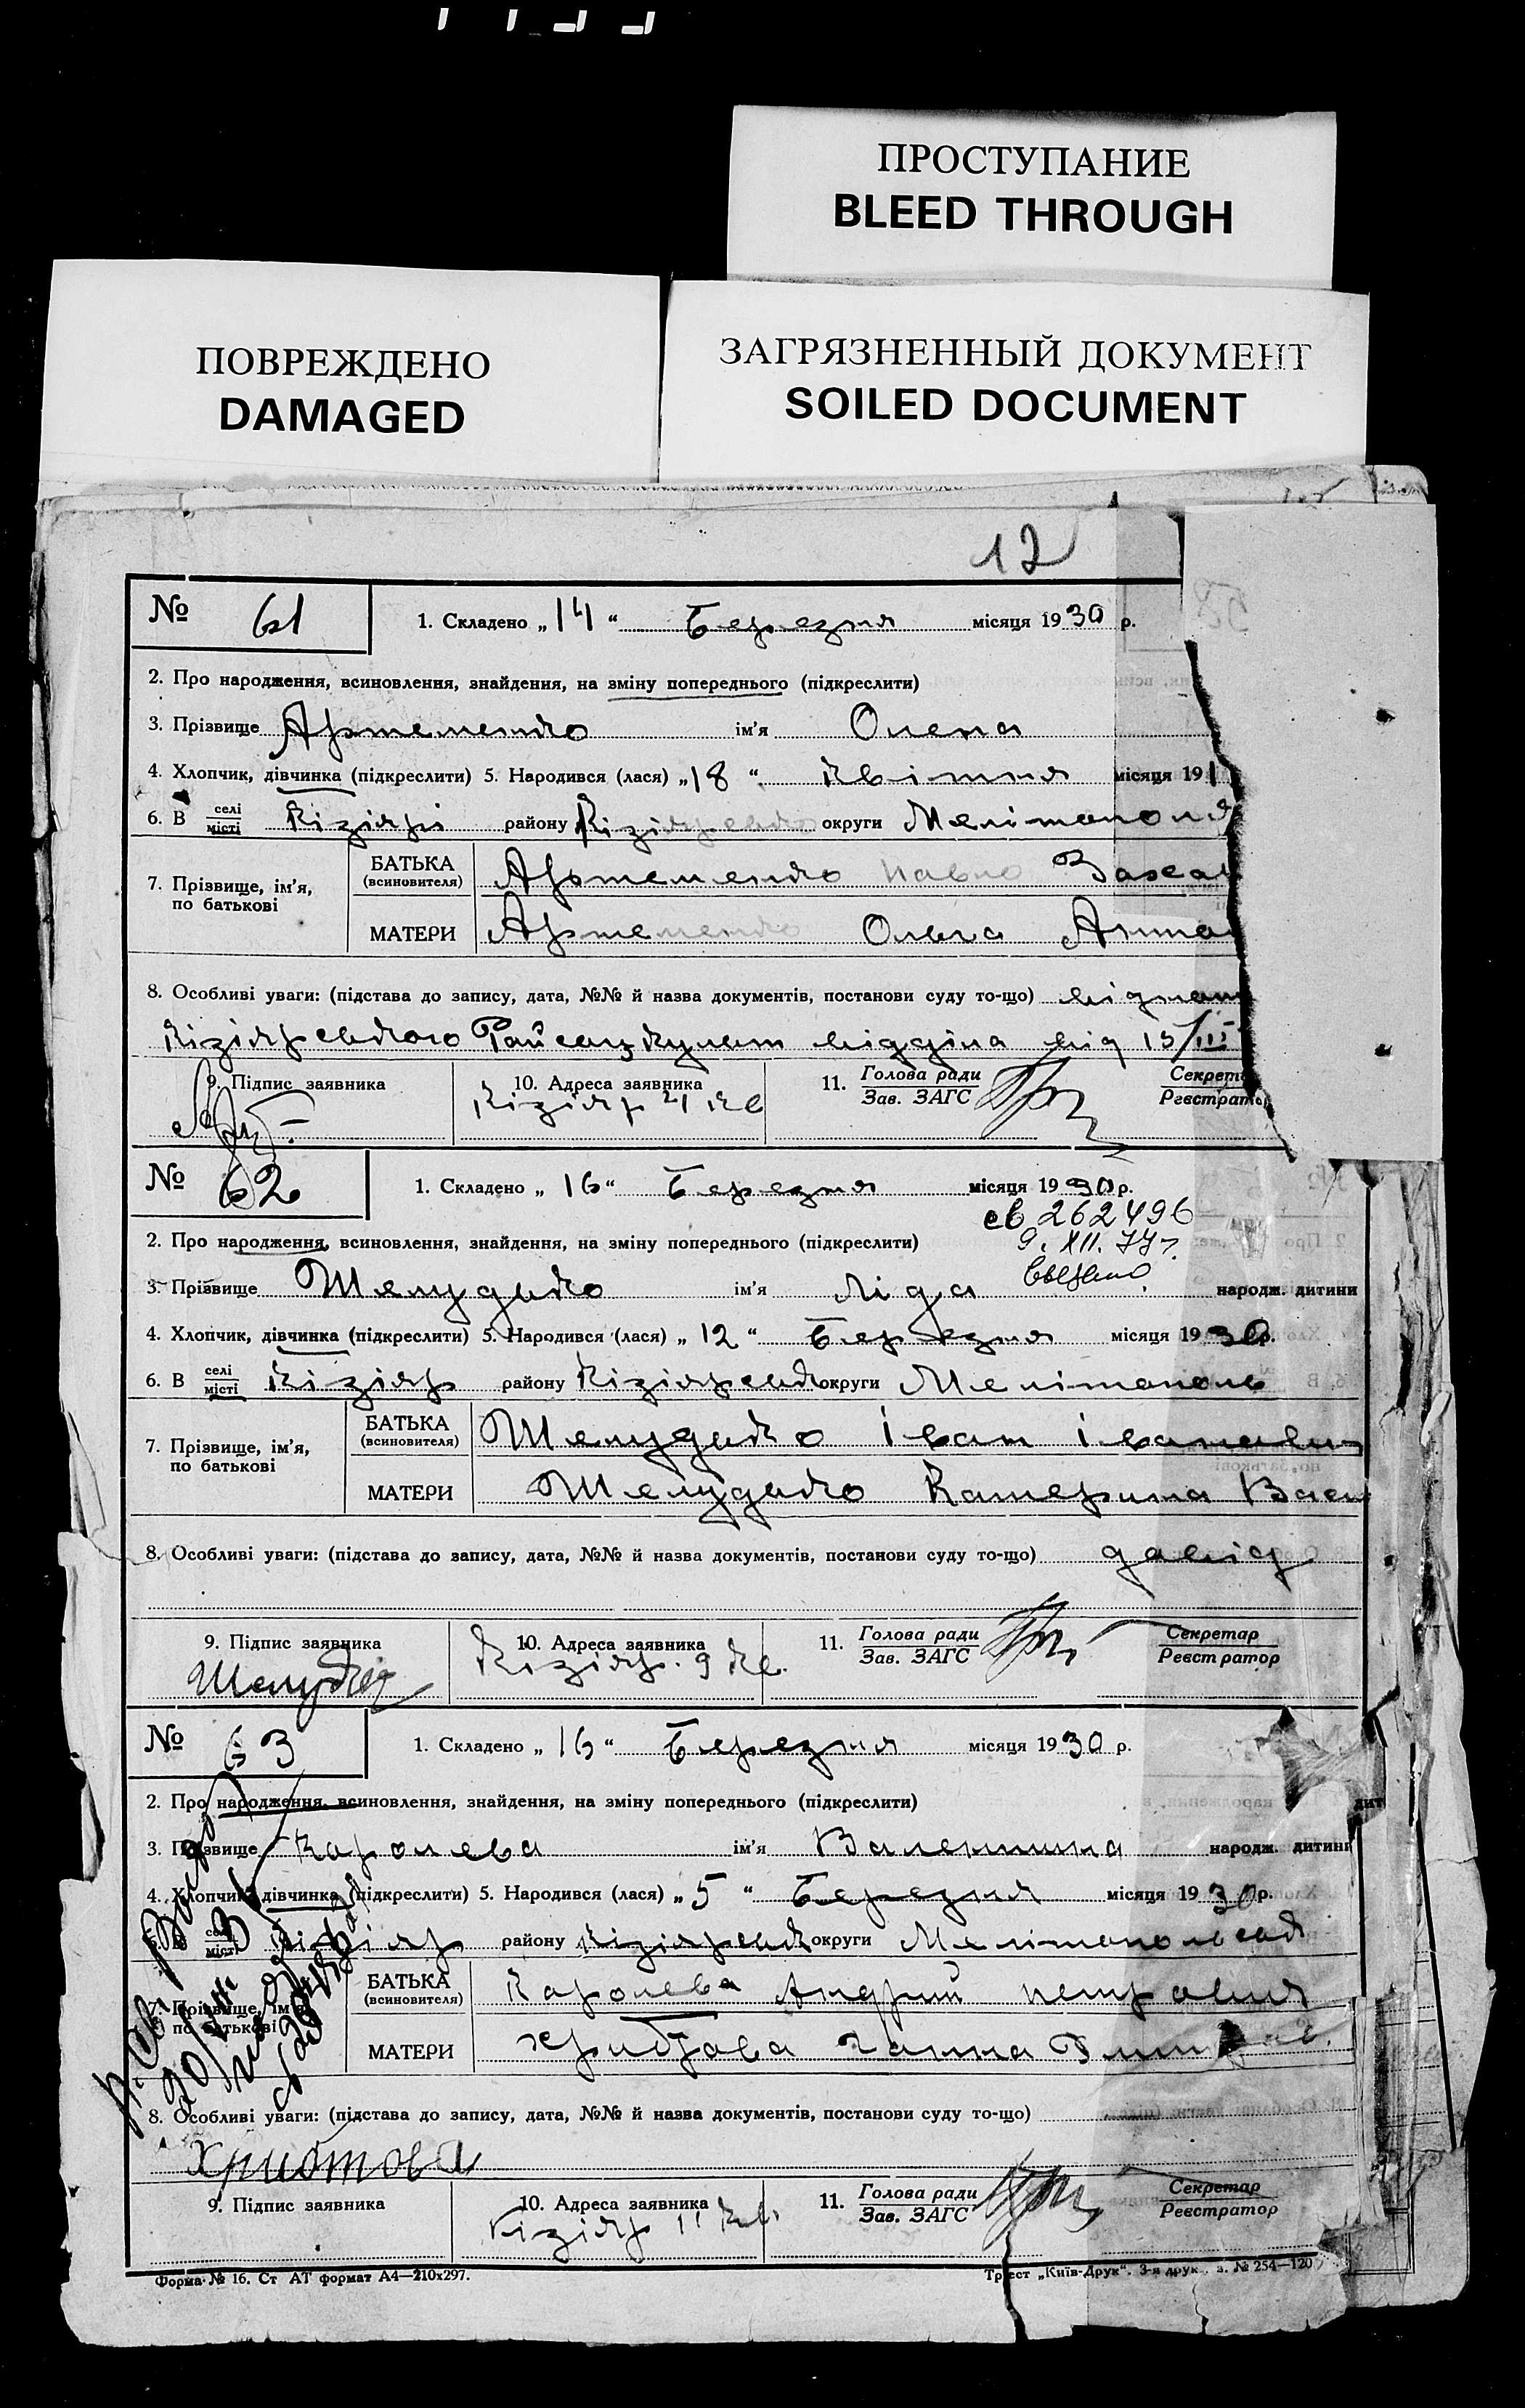 ПРОСТУПАНИЕ
BLEED THROUGH
ПОВРЕЖДЕНО
DAMAGED
ЗАГРЯЗНЕННЫЙ ДОКУМЕНТ
SOILED DOCUMENT
12
№ 61 1. Складено „14“ Березня місяця 1930 р.
2. Про народження, всиновлення, знайдення, на зміну попереднього (підкреслити)
3. Прізвище Артеменко ім'я Олена
4. Хлопчик, дівчинка (підкреслити) 5. Народився (лася) „18“ Квітня місяця 191
6. В селі місті Кізіярі району Кізіяревсько округи Мелітополь
7. Прізвище, ім'я, по батькові
БАТЬКА (всиновителя) Артеменко Павло Захар
МАТЕРИ Артеменко Ольга Антон
8. Особливі уваги: (підстава до запису, дата, №№ й назва документів, постанови суду то-що)
Кізіярського Райсоцкульт відділа від 13/III
9. Підпис заявника 10. Адреса заявника 11. Голова ради Зав. ЗАГС Секретар Реєстратор
Кізіяр 21 кв
№ 62 1. Складено „16“ Березня місяця 1930 р.
св 262496
2. Про народження, всиновлення, знайдення, на зміну попереднього (підкреслити) 9. XII. 77 г.
3. Прізвище Шелудько ім'я Ліда народж. дитини
4. Хлопчик, дівчинка (підкреслити) 5. Народився (лася) „12“ Березня місяця 1930 р.
6. В селі місті Кізіяр району Кізіярський округи Мелітополь
7. Прізвище, ім'я, по батькові
БАТЬКА (всиновителя) Шелудько Іван Іванович
МАТЕРИ Шелудько Катерина Васи
8. Особливі уваги: (підстава до запису, дата, №№ й назва документів, постанови суду то-що) довід
9. Підпис заявника 10. Адреса заявника 11. Голова ради Зав. ЗАГС Секретар Реєстратор
Кізіяр. 9 кв.
№ 63 1. Складено „16“ Березня місяця 1930 р.
2. Про народження, всиновлення, знайдення, на зміну попереднього (підкреслити)
3. Прізвище Каролева ім'я Валентина народж. дитини
4. Хлопчик, дівчинка (підкреслити) 5. Народився (лася) „5“ Березня місяця 1930 р.
селі місті Кізіяр району Кізіярськ округи Мелітопольськ
7. Прізвище, ім'я, по батькові
БАТЬКА (всиновителя) Каролева Андрий Петрович
МАТЕРИ Ганна
8. Особливі уваги: (підстава до запису, дата, №№ й назва документів, постанови суду то-що)
Христова
9. Підпис заявника 10. Адреса заявника 11. Голова ради Зав. ЗАГС Секретар Реєстратор
Кізіяр 11 кв.
Форма № 16. Ст АТ формат А4—210х297. Трест „Київ-Друк“. 3-я друк. з. № 254—120